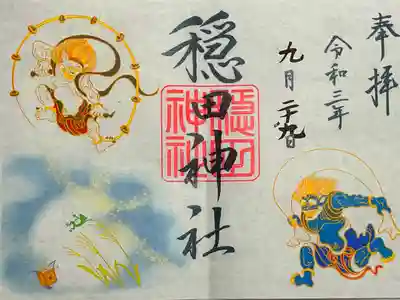 奉拝
令和三年
九月二十九日
穏田神社